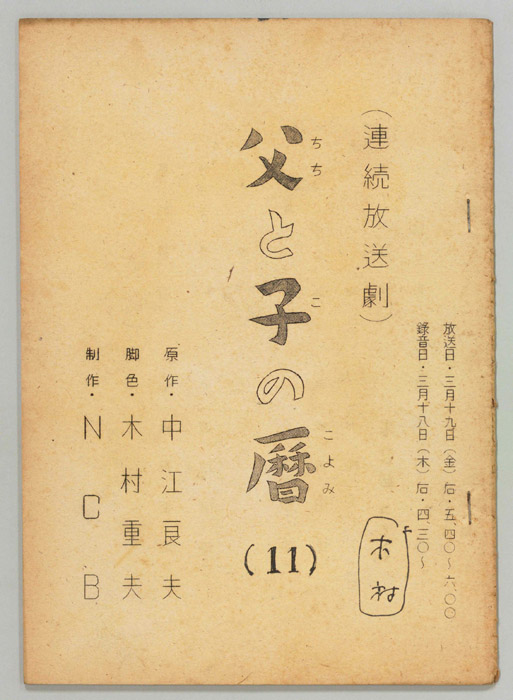 放送日・三月十九日（金）后・五、四〇〜六、〇〇
錄音日・三月十八日（木）后・四、三〇〜
（連続放送劇）
父と子の暦
ちち
こ
こよみ
(11)
木村
原作・中江良夫
脚色・木村重夫
制作・NCB